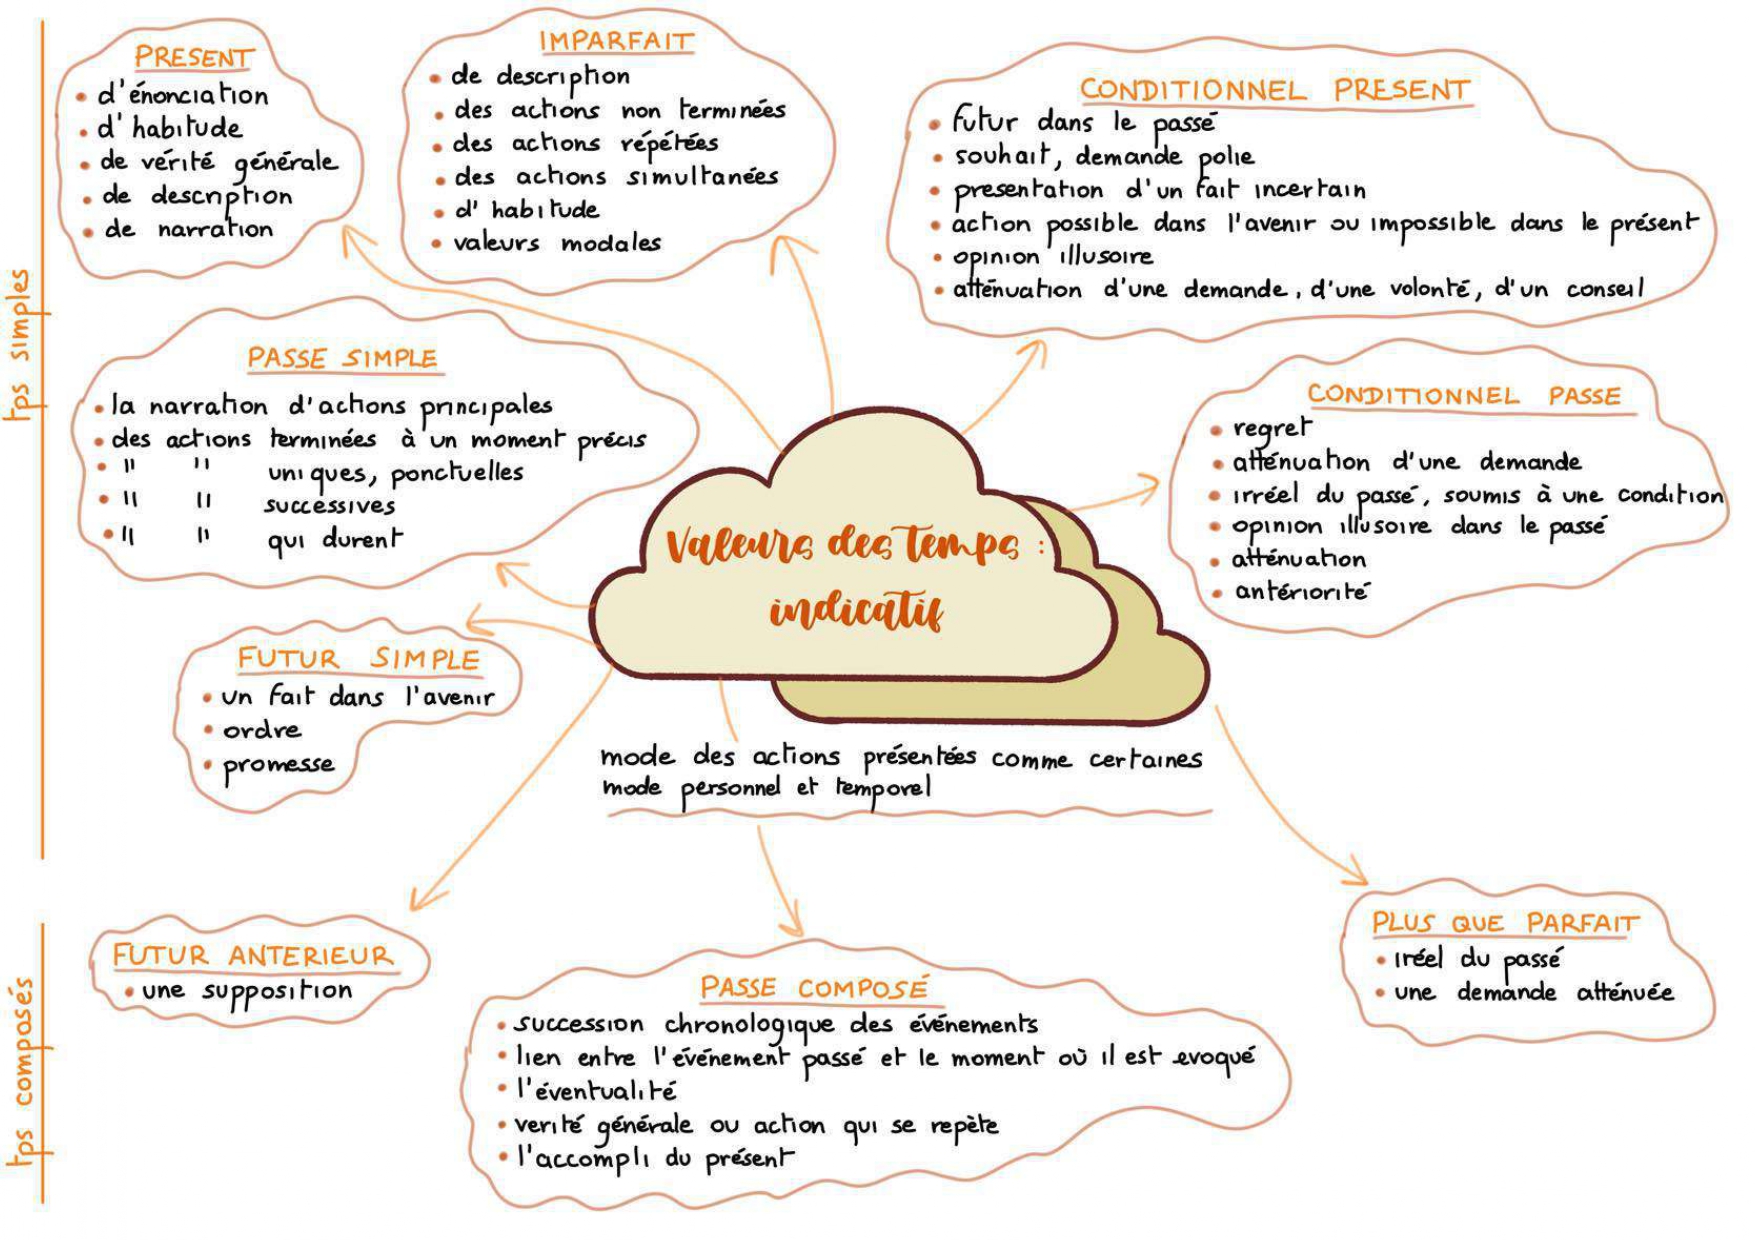 tps simples
PRESENT
• d'énonciation
• d'habitude
• de vérité générale
• de description
• de narration
IMPARFAIT
• de description
• des actions non terminées
• des actions répétées
• des actions simultanées
• d'habitude
• valeurs modales
CONDITIONNEL PRESENT
• futur dans le passé
• souhait, demande polie
• presentation d'un fait incertain
• action possible dans l'avenir ou impossible dans le présent
• opinion illusoire
• atténuation d'une demande, d'une volonté, d'un conseil
PASSE SIMPLE
• la narration d'actions principales
• des actions terminées à un moment précis
• " " uniques, ponctuelles
• " " successives
• " " qui durent
CONDITIONNEL PASSE
• regret
• atténuation d'une demande
• irréel du passé, soumis à une condition
• opinion illusoire dans le passé
• atténuation
• antériorité
Valeurs des temps :
indicatif
FUTUR SIMPLE
• un fait dans l'avenir
• ordre
• promesse
mode des actions présentées comme certaines
mode personnel et temporel
tps composés
FUTUR ANTERIEUR
• une supposition
PASSE COMPOSÉ
• succession chronologique des événements
• lien entre l'événement passé et le moment où il est evoqué
• l'éventualité
• verité générale ou action qui se repète
• l'accompli du présent
PLUS QUE PARFAIT
• iréel du passé
• une demande atténuée